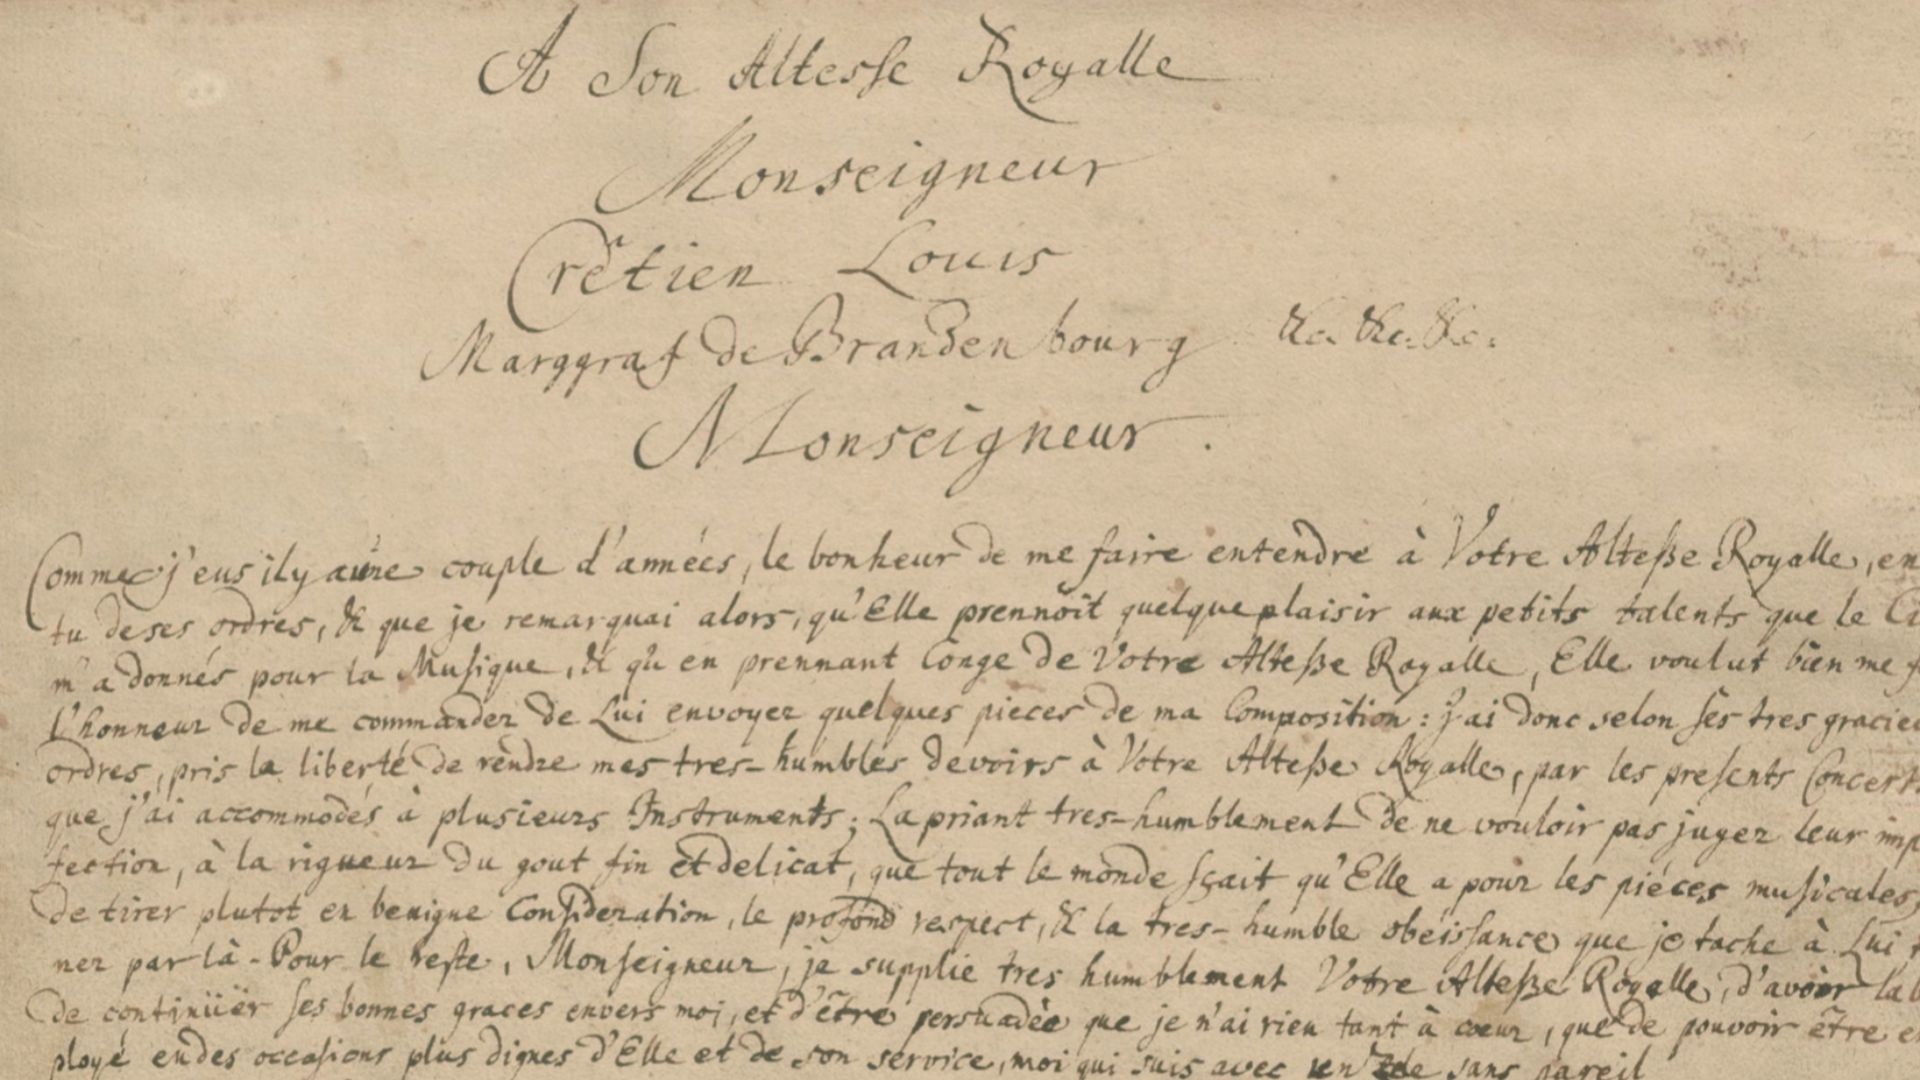 A Son Altesse Royalle
Monseigneur
Crêtien Louis
Marggraf de Brandenbourg &c. &c. &c.
Monseigneur.
Comme j'eus il y a une couple d'années, le bonheur de me faire entendre à Votre Alteße Royalle, en
tu de ses ordres, & que je remarquai alors, qu'Elle prennoit quelque plaisir aux petits talents que le Ci
m'a donnés pour la Musique, & qu'en prennant Conge de Votre Alteße Royalle, Elle voulut bien me f
l'honneur de me commander de Lui envoyer quelques pieces de ma Composition: j'ai donc selon ses tres gracieu
ordres, pris la liberté de rendre mes tres-humbles devoirs à Votre Alteße Royalle, par les presents Concerts
que j'ai accommodés à plusieurs Instruments; La priant tres-humblement de ne vouloir pas juger leur imp
fection, à la rigueur du gout fin et delicat, que tout le monde sçait qu'Elle a pour les piéces musicales;
de tirer plutot en benigne Consideration, le profond respect, & la tres-humble obeissance que je tache à Lui
ner par là. Pour le reste, Monseigneur, je supplie tres humblement Votre Alteße Royalle, d'avoir la b
de continüer ses bonnes graces envers moi, et d'être persuadèe que je n'ai rien tant à cœur, que de pouvoir être e
ployé en des occasions plus dignes d'Elle et de son service, moi qui suis avec un zele sans pareil